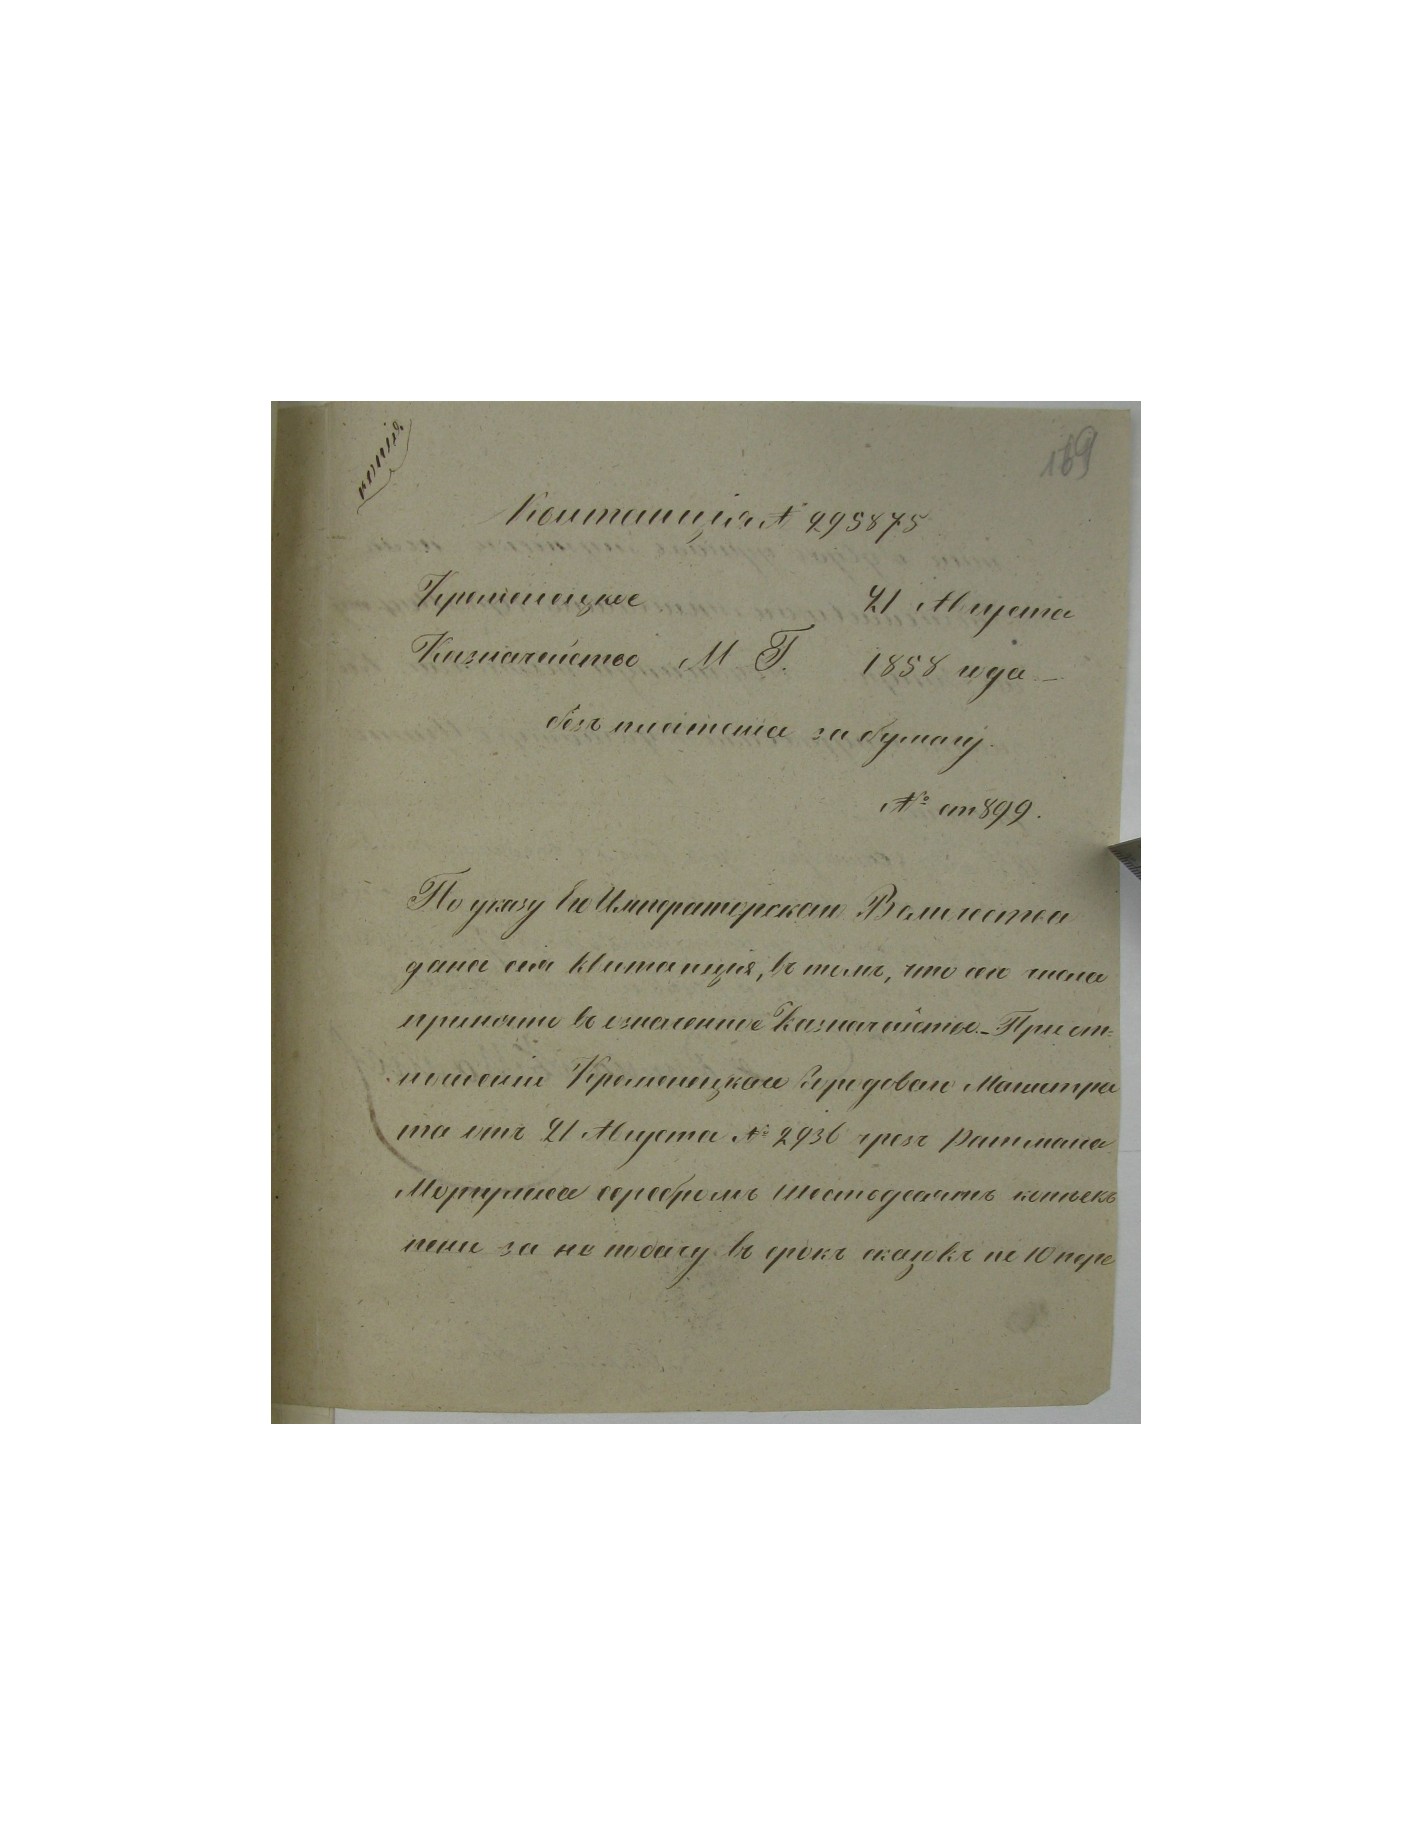 копія
169
Квитанція № 295875
Кременецкое 21 Августа
Казначейство М Г. 1858 года
безъ платежа за бумагу.
№ ст 899.
По указу Его Императорскаго Величества
дана сія квитанція, въ томъ, что сего числа
принято въ означенное Казначейство. - При от-
ношеніи Кременецкаго Городоваго Магистра
та отъ 21 Августа № 2936 чрезъ Ратмана
серебромъ шестьдесятъ копѣекъ
пени за не подачу въ срокъ сказокъ по 10 пере